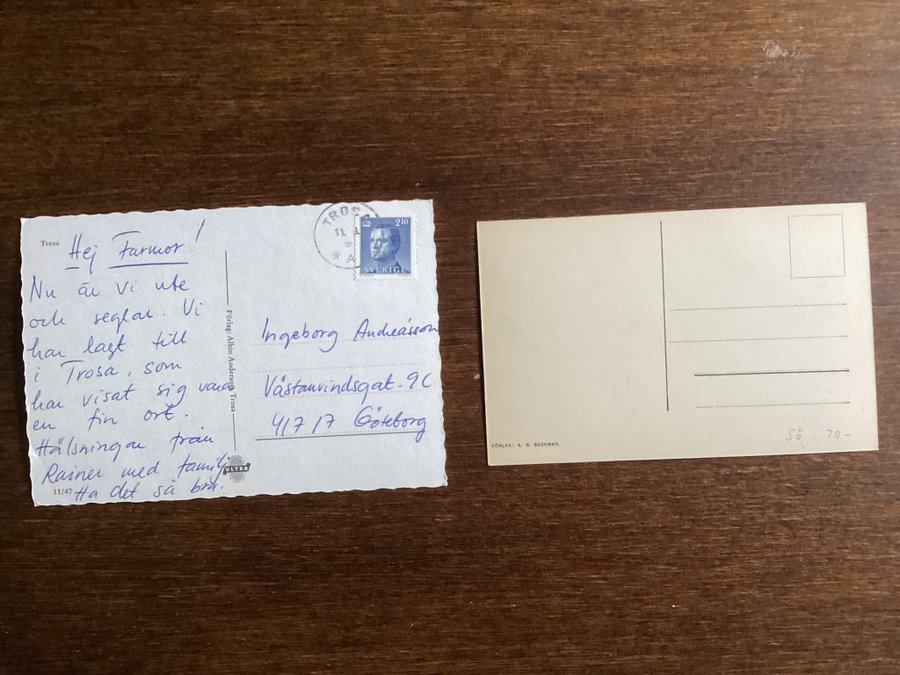 Trosa
Hej Farmor!
Nu är vi ute
och seglar. Vi
har lagt till
i Trosa, som
har visat sig vara
en fin ort.
Hälsningar från
Rainer med familj
Ha det så bra.
11/47
Förlag: Albin Anderson, Trosa
ULTRA
TROSA
11
A
2.10
SVERIGE
Ingeborg Andreásson
Västanvindsgat. 9C
417 17 Göteborg
FÖRLAG: K. G. BECKMAN.
Sö 70-